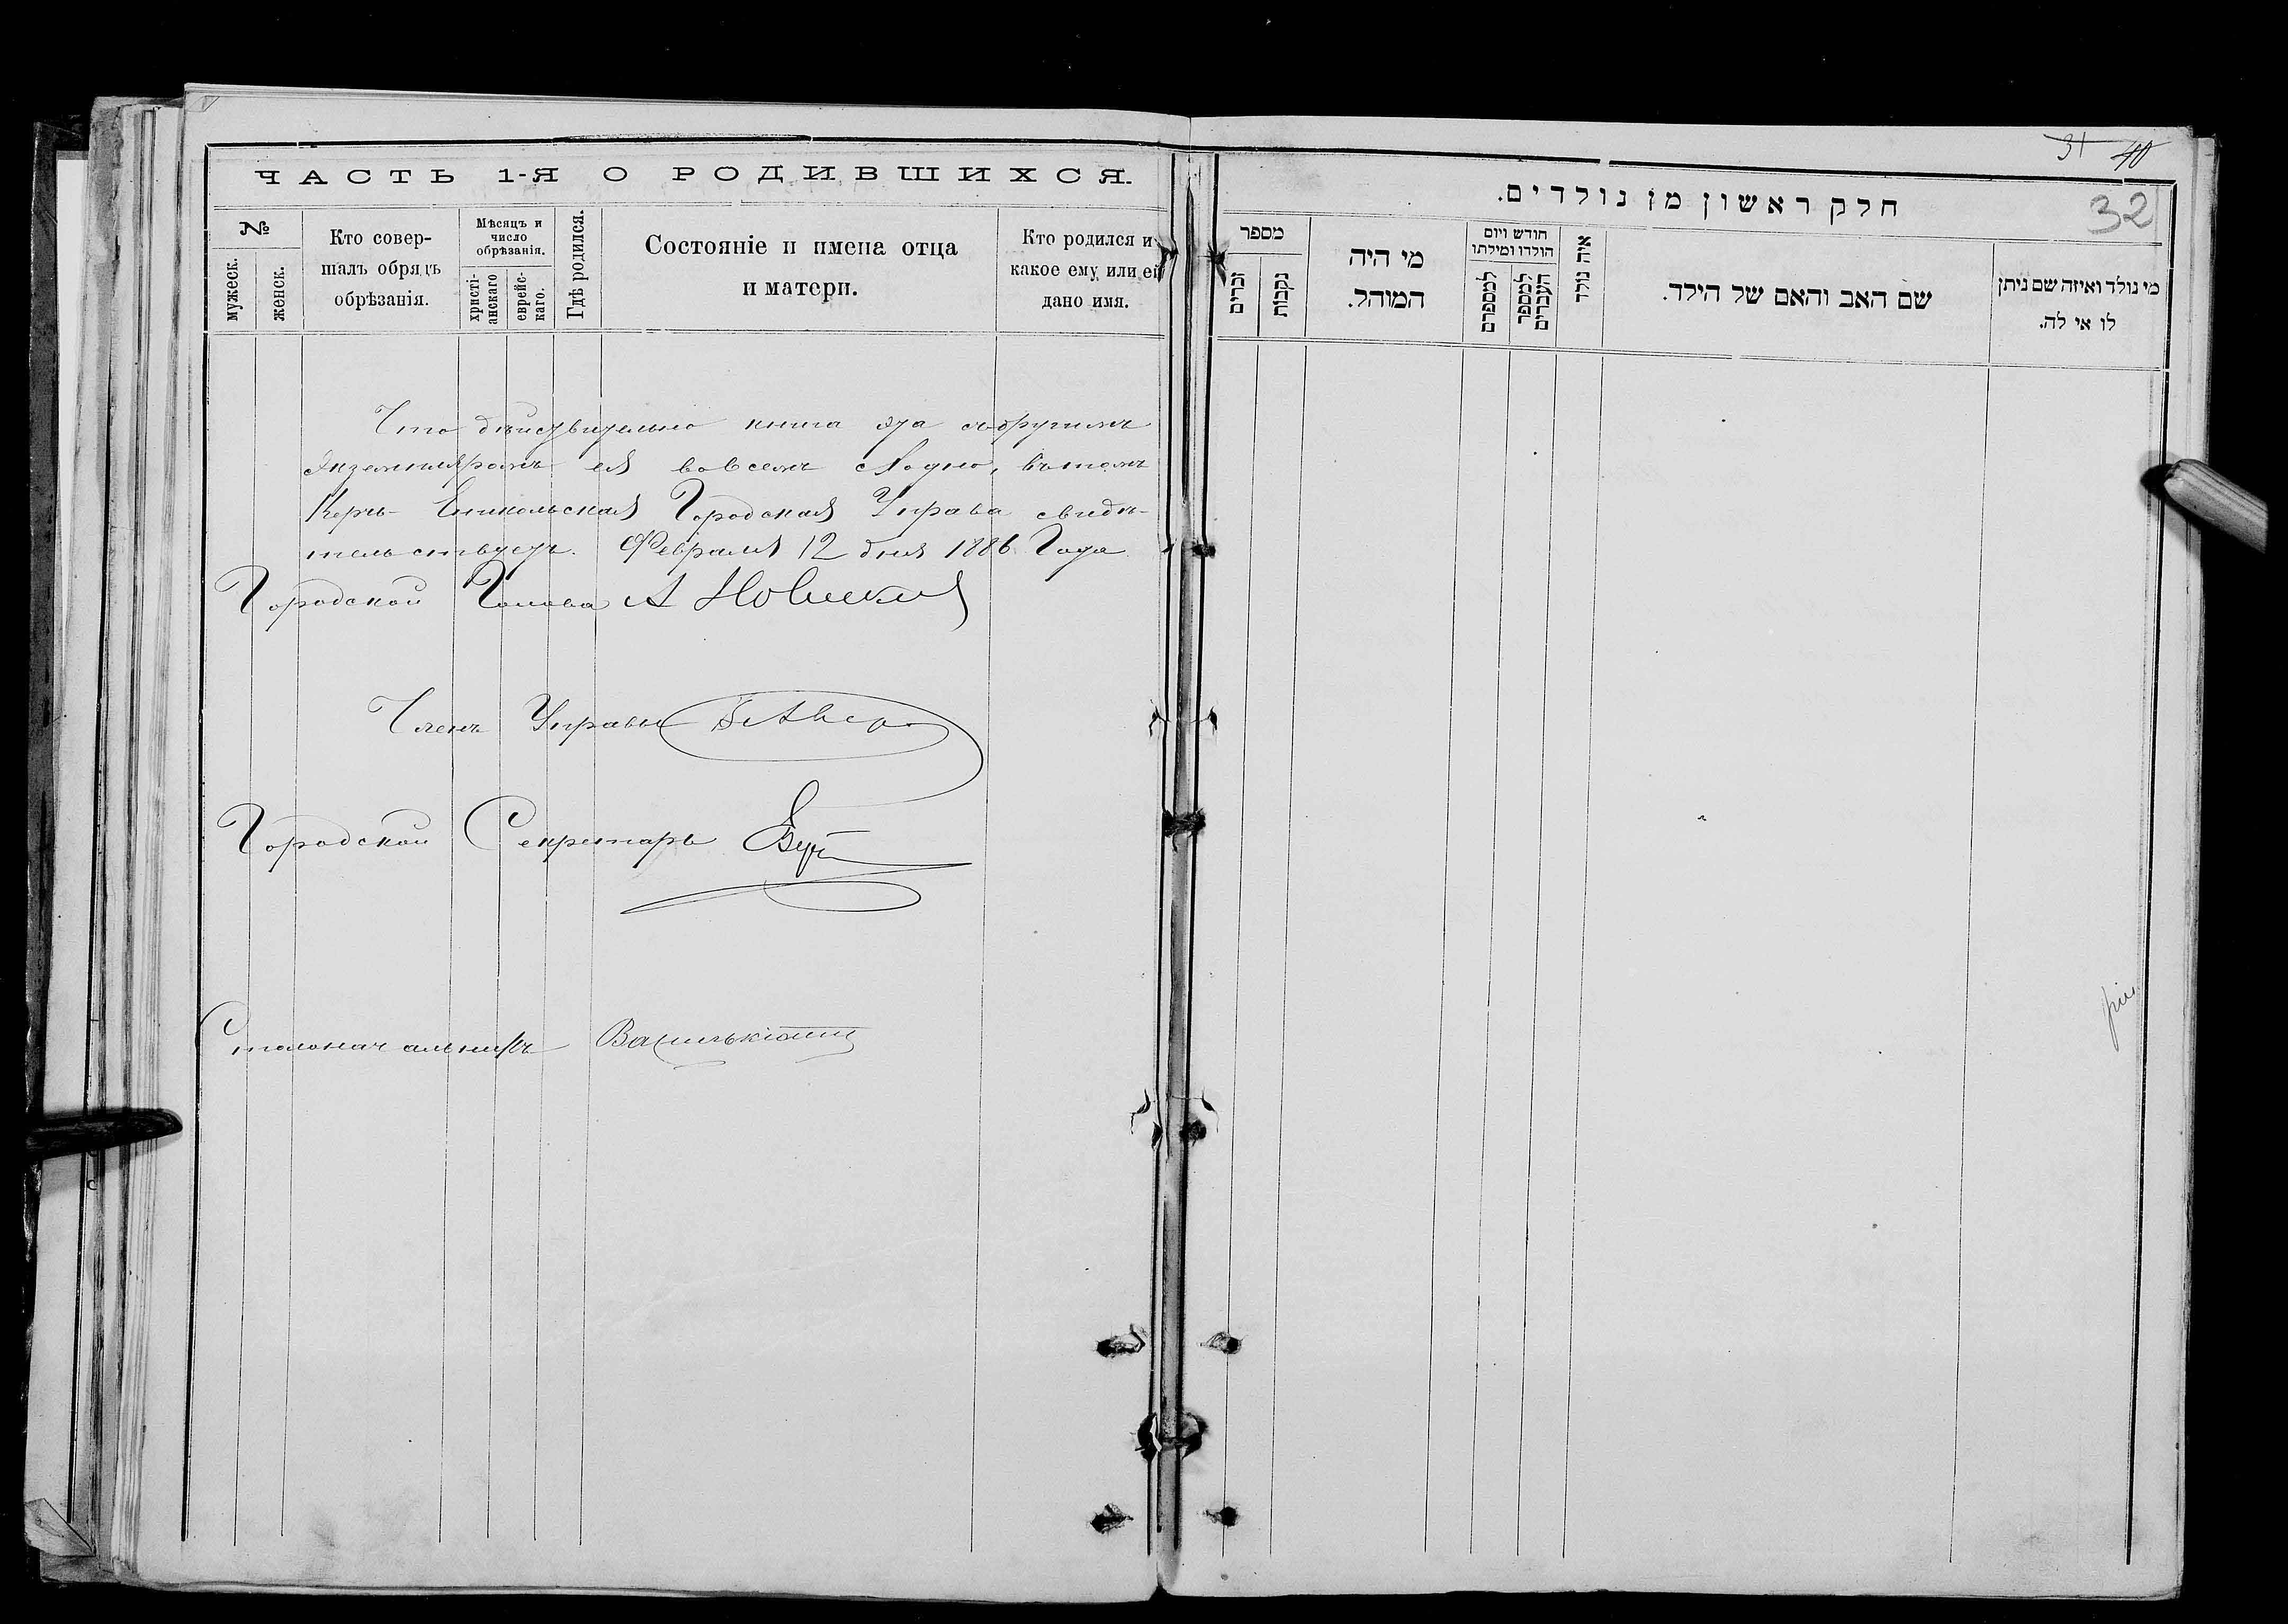 ЧАСТЬ 1-Я О РОДИВШИХСЯ.
№
мужеск.
женск.
Кто совер-
шалъ обрядъ
обрѣзанія.
Мѣсяцъ и
число
обрѣзанія.
христі-
анскаго
еврейс-
каго.
Гдѣ родился.
Состояніе и имена отца
и матери.
Кто родился и
какое ему или ей
дано имя.
Что дѣйствительно книга эта съ другимъ
экземпляромъ ея во всемъ сходно, въ томъ
Керчь-Еникольская Городская Управа свидѣ-
тельствуетъ. Февраля 12 дня 1886 Года
Городской Голова А Новицкій
Членъ Управы
Городской Секретарь
Столоначальникъ
31 40
32
חלק ראשון מן נולדים.
מספר
זכרים
נקבות
מי היה
המוהל.
חודש ויום
הולדו ומילתו
למספרם
למספר
העברים
איה נולד
שם האב והאם של הילד.
מי נולד ואיזה שם ניתן
לו אי לה.